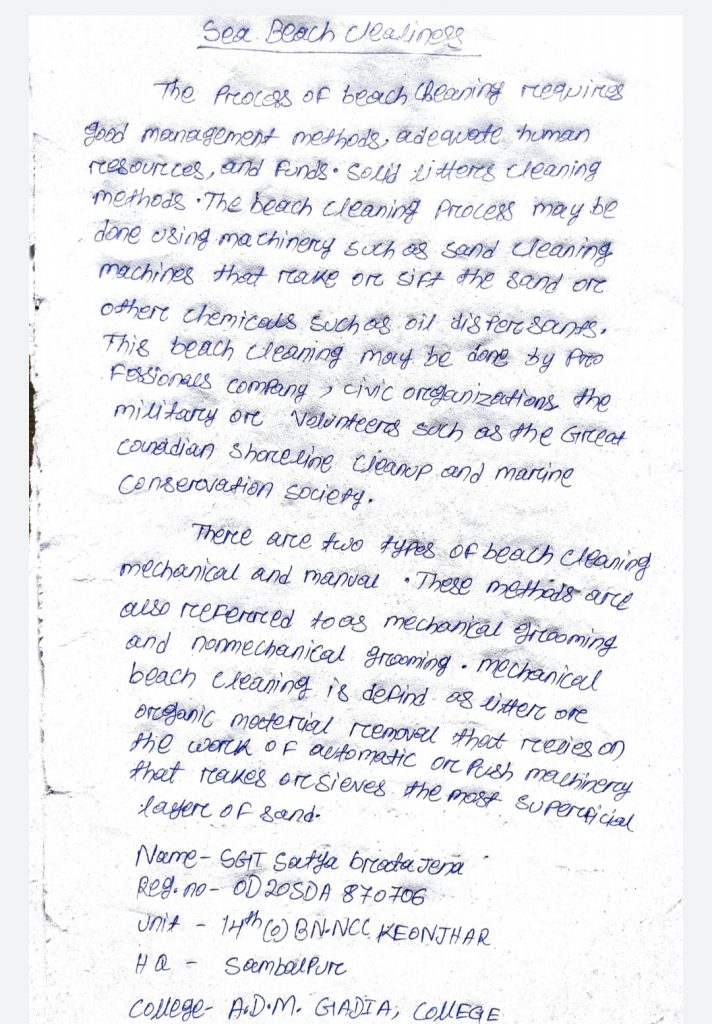 Sea Beach Clealiness
The Process of beach Cleaning requires
good management methods, adequate human
resources, and funds. Solid litters cleaning
methods. The beach cleaning Process may be
done using machinery such as sand cleaning
machines that rake or sift the sand or
other chemicals such as oil dispersants.
This beach cleaning may be done by Pro
fessionals company, civic organizations, the
military or volunteers such as the Great
canadian shoreline cleanup and marine
conservation society.
There are two types of beach cleaning
mechanical and manual. These methods are
also referred to as mechanical grooming
and nonmechanical grooming. mechanical
beach cleaning is defind as litter or
organic material removal that relies on
the work of automatic or Push machinery
that rakes or sieves the most superficial
layer of sand.
Name- SGT Satya brata Jena
Reg. no- OD20SDA 870706
Unit - 14th (O) BN.NCC KEONJHAR
HQ - Sambalpur
College- A.D.M. GADIA, COLLEGE